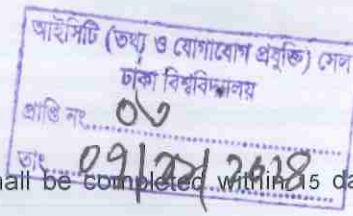 আইসিটি (তথ্য ও যোগাযোগ প্রযুক্তি) সেল
ঢাকা বিশ্ববিদ্যালয়
প্রাপ্তি নং ০৩
তাং
hall be completed within 15 da